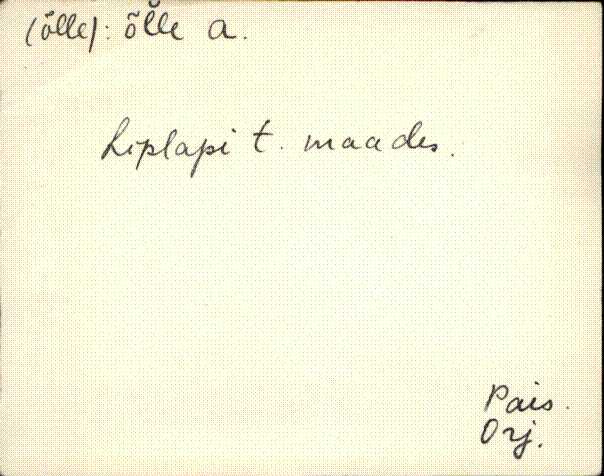 (õlle): õl̆le a.
Liplapi t. maades.
Pais.
Orj.